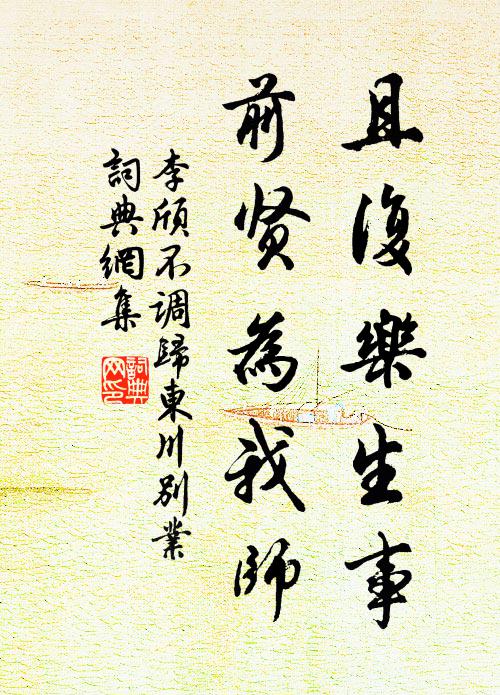 且復樂生事
前贤為我師
李頎不调歸東川別業
詞典網集
詞典
网印